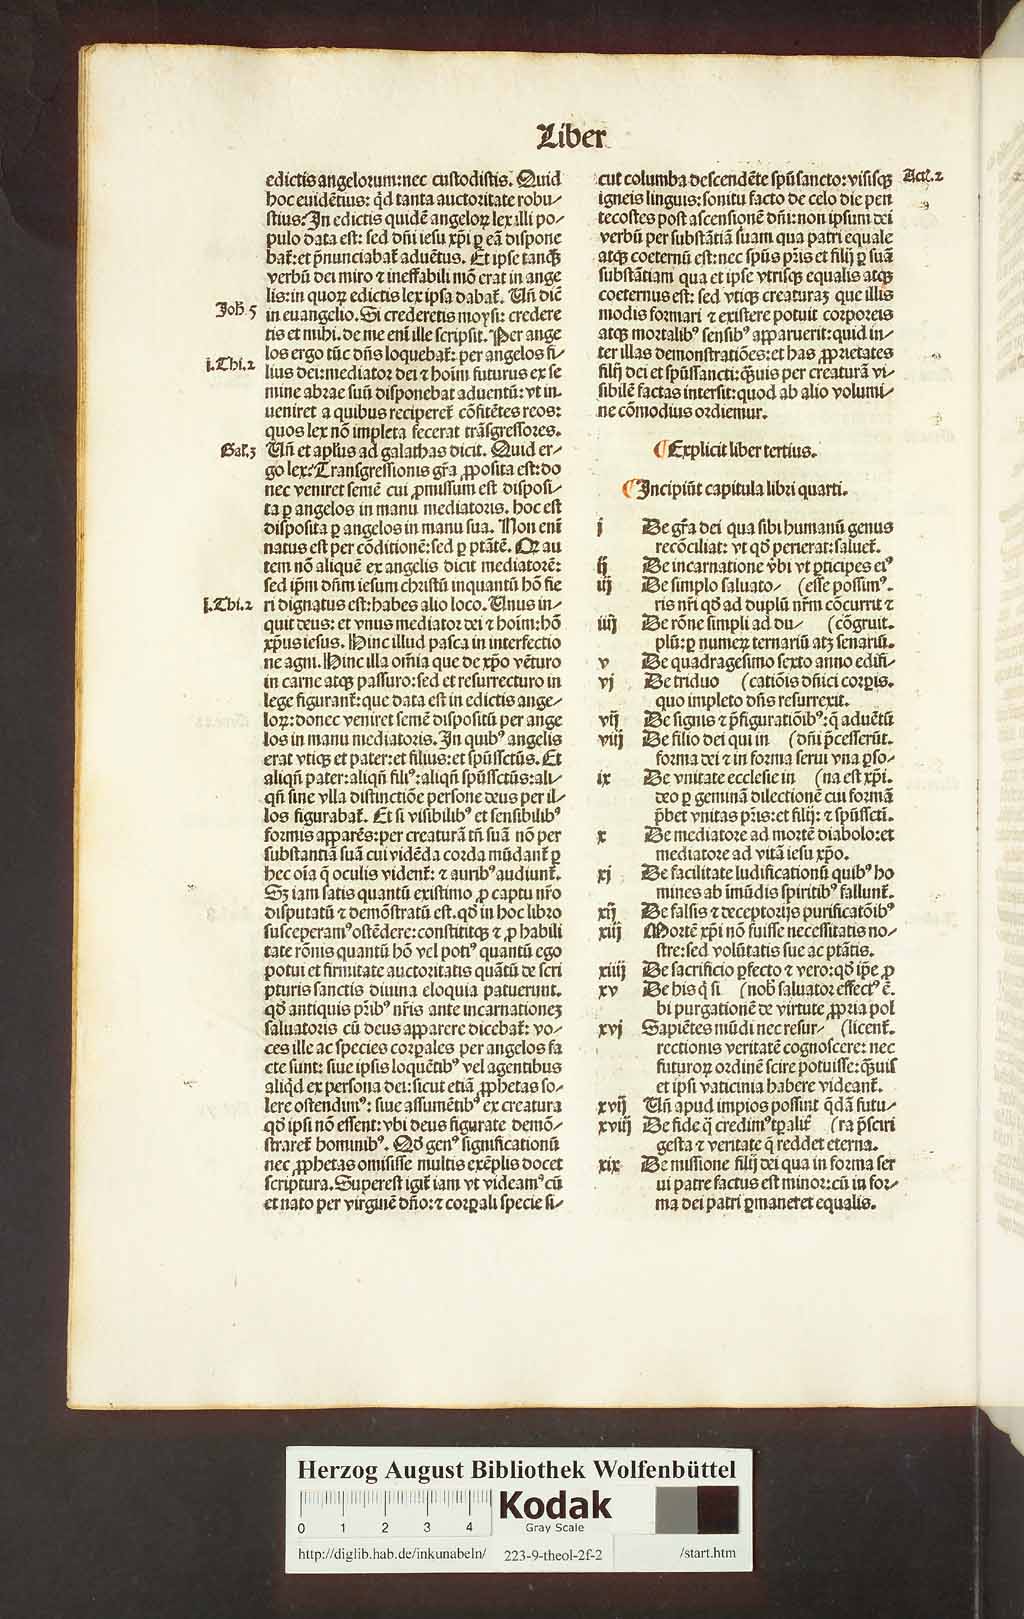 Liber
edictis angelorum: nec custodistis. Quid
hoc euidẽtius: q̃d tanta auctoritate robu⸗
stius? In edictis quidẽ angeloꝝ lex illi po⸗
pulo data est: sed dñi iesu xp̃i ꝑ eã dispone
bat̃: et p̃nunciabat̃ aduẽtus. Et ipse tanqꝫ
verbũ dei miro ⁊ ineffabili mõ erat in ange
lis: in quoꝝ edictis lex ipsa dabat̃. Uñ diẽ
Joh̃. 5
in euangelio. Si crederetis moysi: credere
tis et mihi. de me eni ille scripsit. Per ange
los ergo tũc dñs loquebat̃: per angelos fi⸗
j. Thi. 2
lius dei: mediator dei ⁊ hoĩm futurus ex se
mine abrae suũ disponebat aduentũ: vt in⸗
ueniret a quibus reciperet̃ cõfitẽtes reos:
quos lex nõ impleta fecerat trãsgressores.
Gal. 3
Uñ et apl̃us ad galathas dicit. Quid er⸗
go lex? Transgressionis gr̃a ꝓposita est: do
nec veniret semẽ cui ꝓmissum est disposi⸗
ta ꝑ angelos in manu mediatoris. hoc est
disposita ꝑ angelos in manu sua. Non enĩ
natus est per cõditionẽ: sed ꝑ ptãtẽ. Qꝝ au
tem nõ aliquẽ ex angelis dicit mediatorẽ:
sed ip̃m dñm iesum christũ inquantũ hõ fie
j. Thi. 2
ri dignatus est: habes alio loco. Unus in⸗
quit deus: et vnus mediator dei ⁊ hoĩm: hõ
xp̃us iesus. Hinc illud pasca in interfectio
ne agni. Hinc illa oĩa que de xp̃o vẽturo
in carne atqꝫ passuro: sed et resurrecturo in
lege figurant̃: que data est in edictis ange⸗
loꝝ: donec veniret semẽ dispositũ per ange
los in manu mediatoris. In quibꝰ angelis
erat vtiqꝫ et pater: et filius: et spũssctũs. Et
aliqñ pater: aliqñ filiꝰ: aliqñ spũssctũs: ali⸗
qñ sine vlla distinctiõe persone deus per il⸗
los figurabat̃. Et si visibilibꝰ et sensibilibꝰ
formis apparẽs: per creaturã tñ suã nõ per
substantiã suã cui vidẽda corda mũdant̃ ꝑ
hec oĩa q̃ oculis vident̃: ⁊ auribꝰ audiunt̃.
Sꝫ iam satis quantũ existimo ꝓ captu nr̃o
disputatũ ⁊ demõstratũ est. qd̃ in hoc libro
susceperamꝰ ostẽdere: constititqꝫ ⁊ ꝓbabili
tate rõnis quantũ hõ vel potiꝰ quantũ ego
potui et firmitate auctoritatis quãtũ de scri
pturis sanctis diuina eloquia patuerunt.
qd̃ antiquis pr̃ibꝰ nr̃is ante incarnationeꝫ
saluatoris cũ deus apparere dicebat̃: vo⸗
ces ille ac species corꝑales per angelos fa
cte sunt: siue ipsis loquẽtibꝰ vel agentibus
aliqd̃ ex persona dei: sicut etiã ꝓphetas so⸗
lere ostendimꝰ: siue assumẽtibꝰ ex creatura
qd̃ ipsi nõ essent: vbi deus figurate demõ⸗
straret̃ hominibꝰ. Qd̃ genꝰ significationũ
nec ꝓphetas omisisse multis exẽplis docet
scriptura. Superest igit̃ iam vt videamꝰ cũ
et nato per virginẽ dño: ⁊ corꝑali specie si⸗
cut columba descendẽte spũ sancto: visisqꝫ
Act. 2
igneis linguis: sonitu facto de celo die pen
tecostes post ascensionẽ dñi: non ipsum dei
verbũ per substãtiã suam qua patri equale
atqꝫ coeternũ est: nec spũs pr̃is et filij ꝑ suã
substãtiam qua et ipse vtrisqꝫ equalis atqꝫ
coeternus est: sed vtiqꝫ creaturaꝫ que illis
modis formari ⁊ existere potuit corporeis
atqꝫ mortalibꝰ sensibꝰ apparuerit: quid in⸗
ter illas demonstratiões: et has ꝓprietates
filij dei et spũssancti: qꝫuis per creaturã vi⸗
sibilẽ factas intersit: quod ab alio volumi⸗
ne cõmodius ordiemur.
¶Explicit liber tertius.
¶Incipiũt capitula libri quarti.
j De gr̃a dei qua sibi humanũ genus
recõciliat: vt qd̃ perierat: saluet̃.
ij De incarnatione v̾bi vt ꝑticipes eiꝰ
iij De simplo saluato⸗ (esse possimꝰ.
ris nr̃i qd̃ ad duplũ nr̃m cõcurrit ⁊
iiij De rõne simpli ad du⸗ (cõgruit.
plũ: ꝑ numeꝝ ternariũ atꝫ senariũ.
v De quadragesimo sexto anno edifi⸗
vj De triduo (catiõis dñici corꝑis.
quo impleto dñs resurrexit.
vij De signis ⁊ p̃figuratiõibꝰ: q̃ aduẽtũ
viij De filio dei qui in (dñi p̃cesserũt.
forma dei ⁊ in forma serui vna ꝑso⸗
ix De vnitate ecclesie in (na est xp̃i.
deo ꝑ geminã dilectionẽ cui formã
p̃bet vnitas pr̃is: et filij: ⁊ spũsscti.
x De mediatore ad mortẽ diabolo: et
mediatore ad vitã iesu xp̃o.
xj De facilitate ludificationũ quibꝰ ho
mines ab ĩmũdis spiritibꝰ fallunt̃.
xij De falsis ⁊ deceptorijs purificatõibꝰ
xiij Mortẽ xp̃i nõ fuisse necessitatis no⸗
stre: sed volũtatis sue ac ptãtis.
xiiij De sacrificio ꝑfecto ⁊ vero: qd̃ ip̃e ꝓ
xv De his q̃ si (nob̃ saluator effectꝰ ẽ.
bi purgationẽ de virtute ꝓpria pol
xvj Sapiẽtes mũdi nec resur⸗ (licent̃.
rectionis veritatẽ cognoscere: nec
futuroꝝ ordinẽ scire potuisse: qꝫuis
et ipsi vaticinia habere videant̃.
xvij Uñ apud impios possint q̃dã futu⸗
xviij De fide q̃ credimꝰ tp̃alit̃ (ra p̃sciri
gesta ⁊ veritate q̃ reddet eterna.
xix De missione filij dei qua in forma ser
ui patre factus est minor: cũ in for⸗
ma dei patri ꝑmaneret equalis.
Herzog August Bibliothek Wolfenbüttel
0 1 2 3 4
Kodak
Gray Scale
http://diglib.hab.de/inkunabeln/ 223-9-theol-2f-2 /start.htm